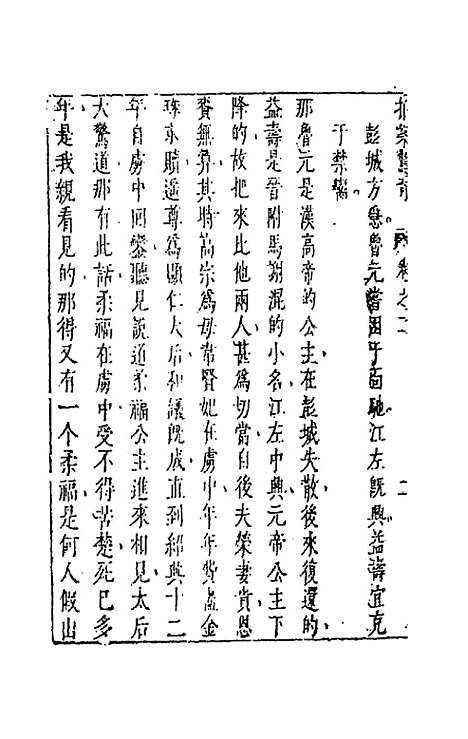 拍案驚奇　卷之二　二
彭城方急魯元嘗困于面馳江左既興益壽宜克
于禁臠
那魯元是漢高帝的公主在彭城失散後來復還的
益壽是晉附馬謝混的小名江左中興元帝公主下
降的故把來比他兩人甚為切當自後夫榮妻貴恩
賚無算其時高宗為母韋賢妃在虜中年年費盡金
珠求贖遥尊為顯仁太后和議既成直到紹興十二
年自虜中回鑾聽見說道柔福公主進來相見太后
大驚道那有此話柔福在虜中受不得苦楚死已多
年是我親看見的那得又有一个柔福是何人假出